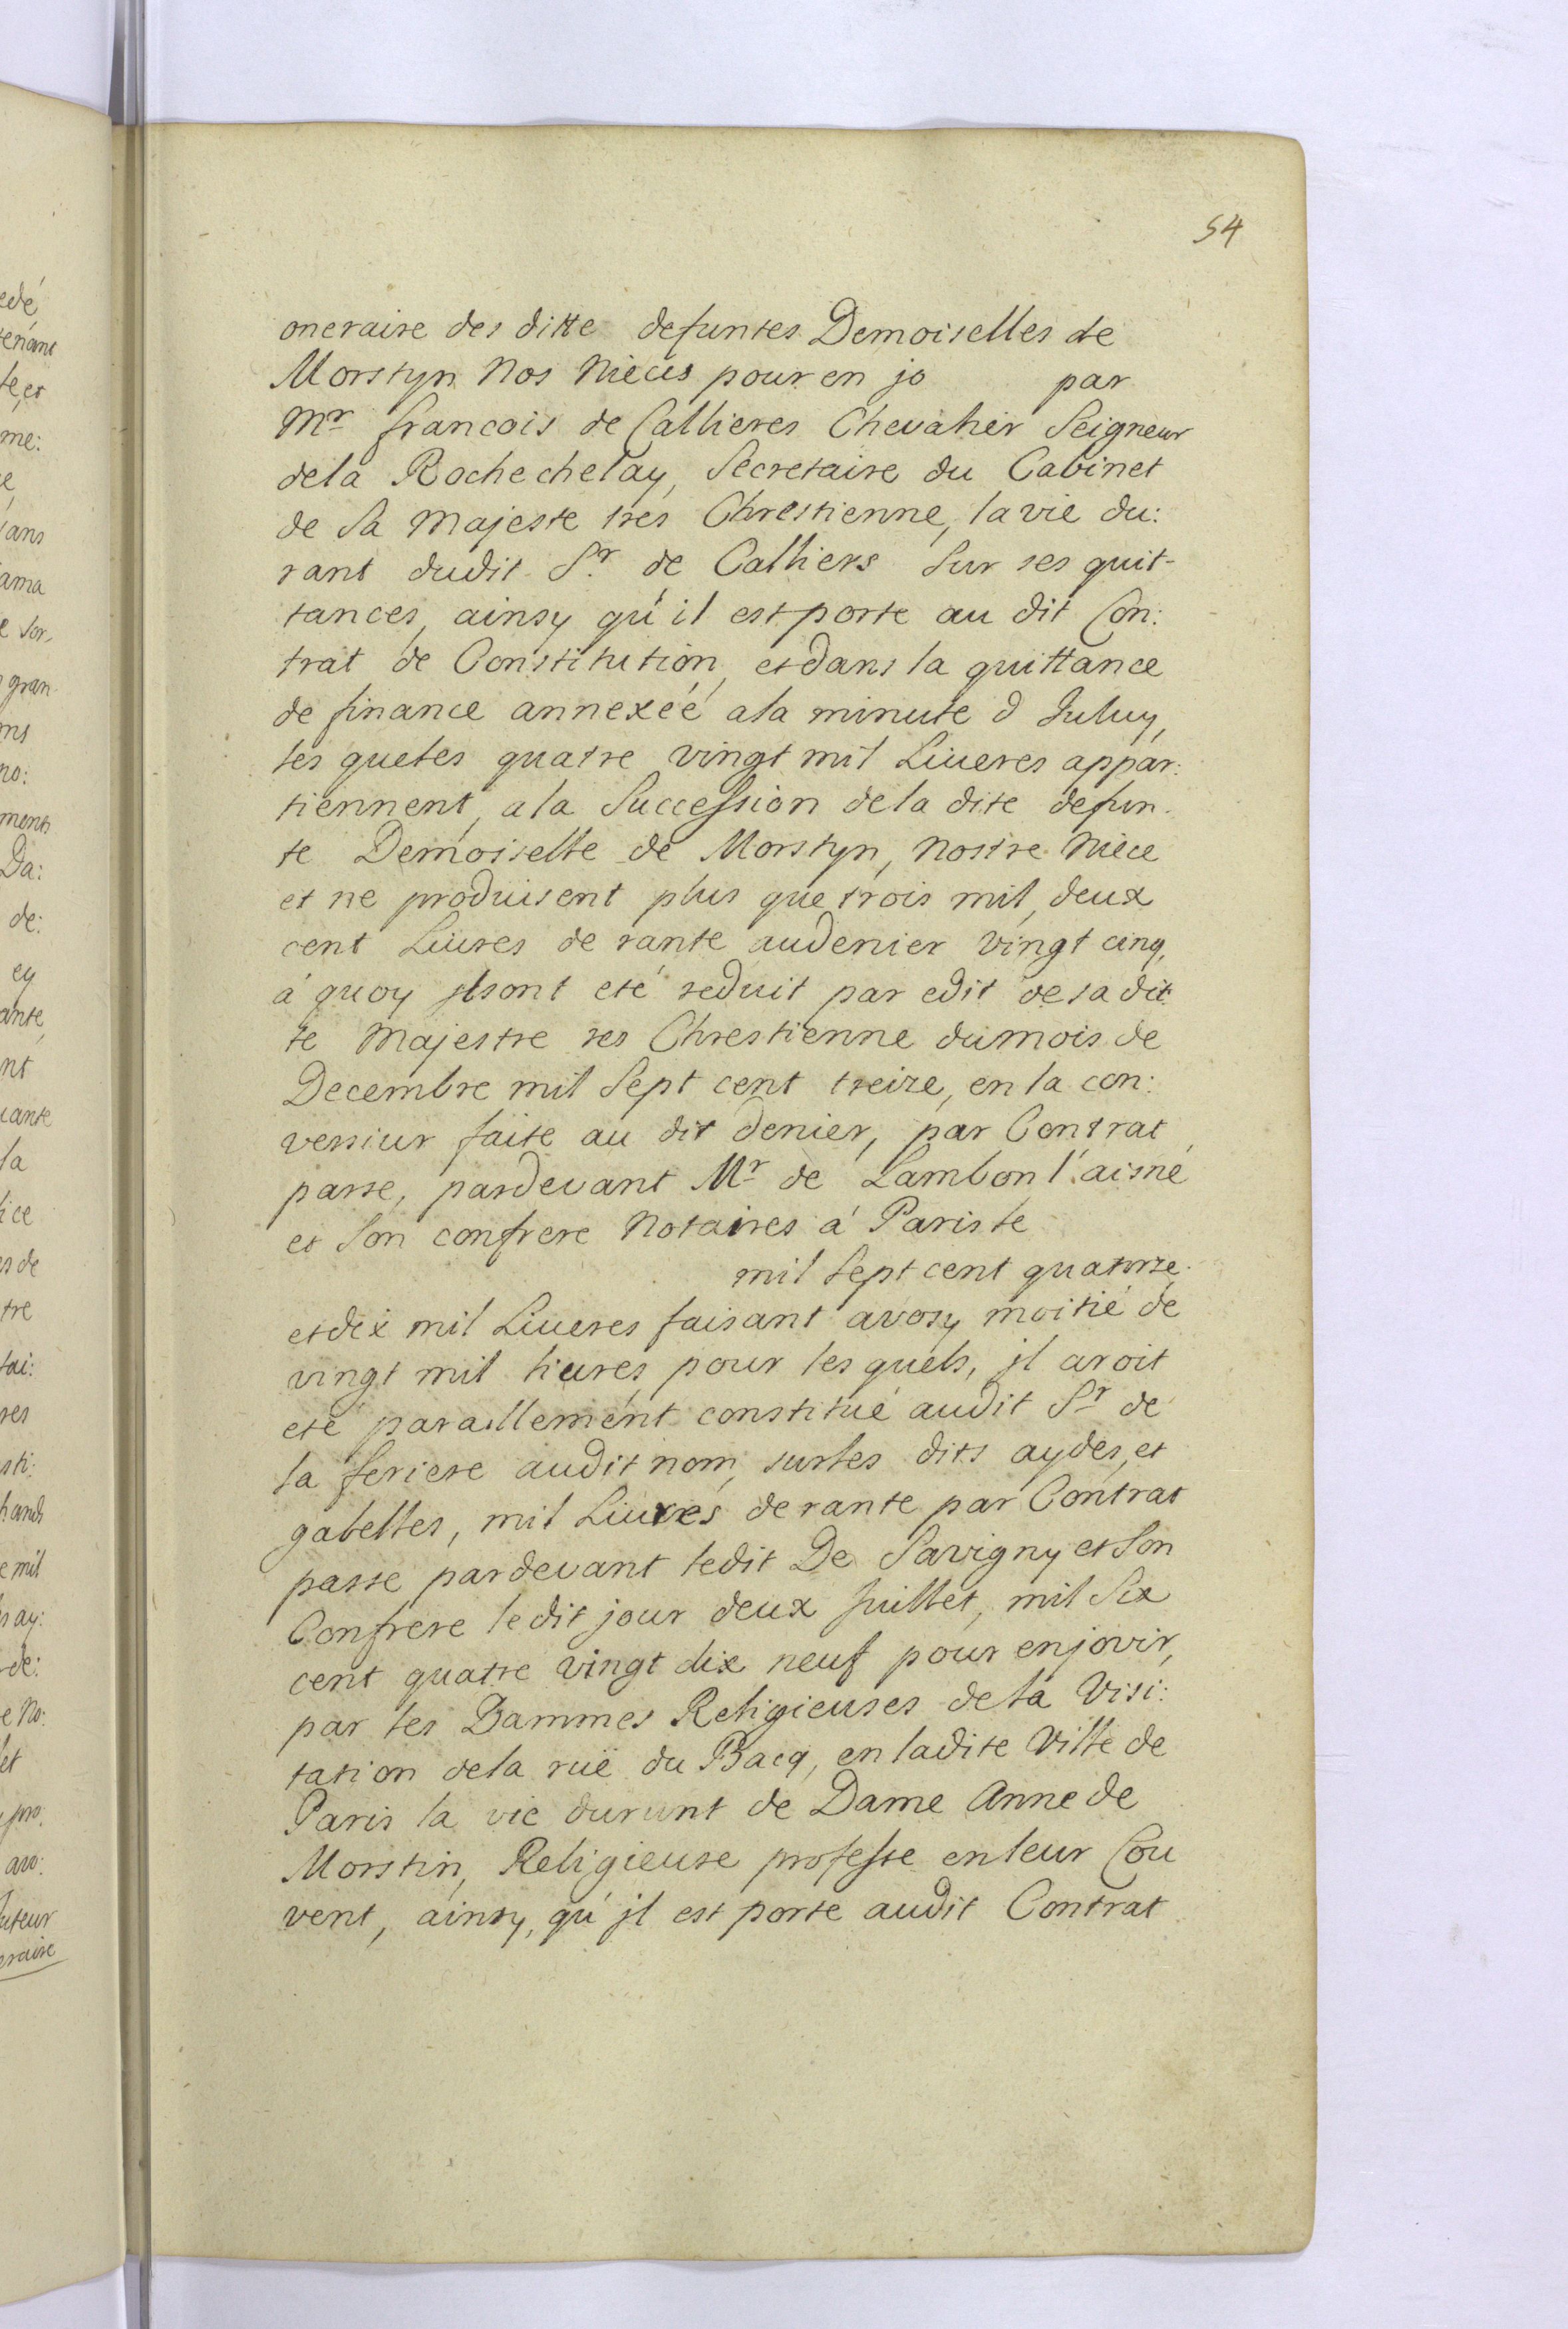 54
oneraire des ditte defuntes Demoiselles de
Morstyn Nos Nieces pour en jo par
Mr francois de Callieres Chevalier Seigneur
dela Rochechelay, Secretaire du Cabinet
de Sa Majeste tres Chrestienne, la vie du:
rant dudit Sr. de Calliers Sur ses quit-
tances, ainsy qu'il est porte au dit Con:
trat de Constitution, et dans la quittance
de finance annexéé a la minute d Juluy,
les queles quatre vingt mil Liveres appar:
tiennent, a la Succession de la dite defun-
te Demoiselle de Morstyn, Nostre Niece
et ne produisent plus que trois mil, deux
cent Liures de rante audenier vingt cinq,
á quoy jlsont eté reduit par edit de sa dit:
te Majestre res Chrestienne dumois de
Decembre mil Sept cent treize, en la con:
versiur faite au dit denier, par Contrat
passe, pardevant Mr de Lambon l'aisné
et Son confrere Notaires á Paris le
mil Sept cent quatorze.
et dix mil Liveres faisant avosy moitié de
vingt mil liures, pour les quels, jl avoit
eté paraillement constitué audit Sr de
la feriere audit nom, surles dits aydes, et
gabelles, mil Liures de rante par Contrat
passe pardevant ledit De Savigny et Son
Confrere le dit jour deux Juillet, mil Six
cent quatre vingt dix neuf pour enjovir,
par les Dammes Religieuses dela Visi:
tation dela ruë du Bacq, en ladite Ville de
Paris la vie durant de Dame Anne de
Morstin, Religieuse professe enleur Cou
vent, ainsy, qu'jl est porte audit Contrat
edé
tenant
te, et
me:
ans
ama
e sor,
gran
no:
ments
Da:
de:
ey
ante,
nt
uante
la
lice
es de
tre
tai:
res
sti:
hands
e mil
ay:
de:
e No:
let
pro:
avo:
tuteur
eraire